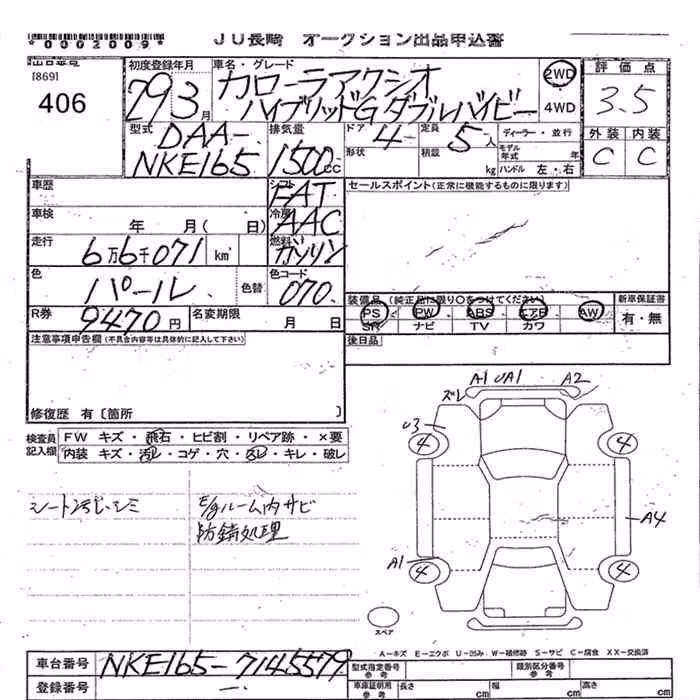 *0002009*
JU長崎 オークション出品申込書
[869]
406
初度登録年月
29 3月
車名・グレード
カローラアクシオ
ハイブリッドG ダブルバイビー
2WD
・
4WD
評価点
3.5
外装 内装
C C
型式
DAA-
NKE165
排気量
1500cc
ドア 4
形状
定員 5人
積載 kg
ディーラー・並行
モデル年式 年
ハンドル 左・右
車歴
シフト FAT
車検 年 月( 日)
冷房 AAC
走行 6万6千071 km
燃料 ガソリン
色 パール
色替
色コード 070
R券 9470円
名変期限 月 日
セールスポイント(正常に機能するものに限ります)
装備品(純正品に限り○をつけてください)
新車保証書
PS PW ABS エアB AW
SR ナビ TV カワ
有・無
後日品
注意事項申告欄(不具合内容等は具体的に記入して下さい)
修復歴 有〔箇所 〕
検査員記入欄
FW キズ・飛石・ヒビ割・リペア跡・×要
内装 キズ・汚れ・コゲ・穴・スレ・キレ・破レ
シート汚レ、シミ
E/gルーム内サビ
防錆処理
ズレ A1 UA1 A2
U3
4 4
A4
A1
4 4
スペア
A－キズ E－エクボ U－凹み W－補修跡 S－サビ C－腐食 XX－交換済
車台番号 NKE165-7145579
登録番号 －
型式指定番号 参考
類別区分番号 参考
車庫証明用 参考 長さ cm 幅 cm 高さ cm